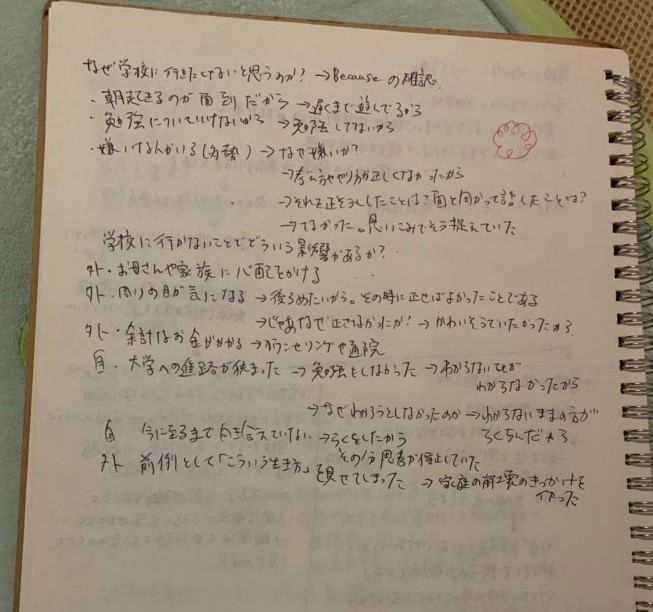 なぜ学校に行きたくないと思うのか？→Becauseの確認
・朝起きるのが面倒だから→遅くまで遊んでるから
・勉強についていけないから→勉強してないから
・嫌いな人がいる(多勢)→なぜ嫌いか？
→考え方ややり方が正しくなかったから
→それを正そうとしたことは？面と向かって話したことは？
→なかった。思いこみでそう捉えていた
学校に行かないことでどういう影響があるか？
外・お母さんや家族に心配をかける
外・周りの目が気になる→後ろめたいから。その時に正せばよかったことである
→じゃあなぜ正さなかったか？→かわいそうでいたかったから
外・余計なお金がかかる→カウンセリングや通院
自・大学への進路が狭まった→勉強をしなかった→わからない
わからなかったから
→なぜわかろうとしなかったのか→わからないままの方が
らくなんだから
自 今に至るまで向き合えていない→らくをしたから
その分思考が停止していた
外 前例として「こういう生き方」を見せてしまった→家庭の崩壊のきっかけを
作った